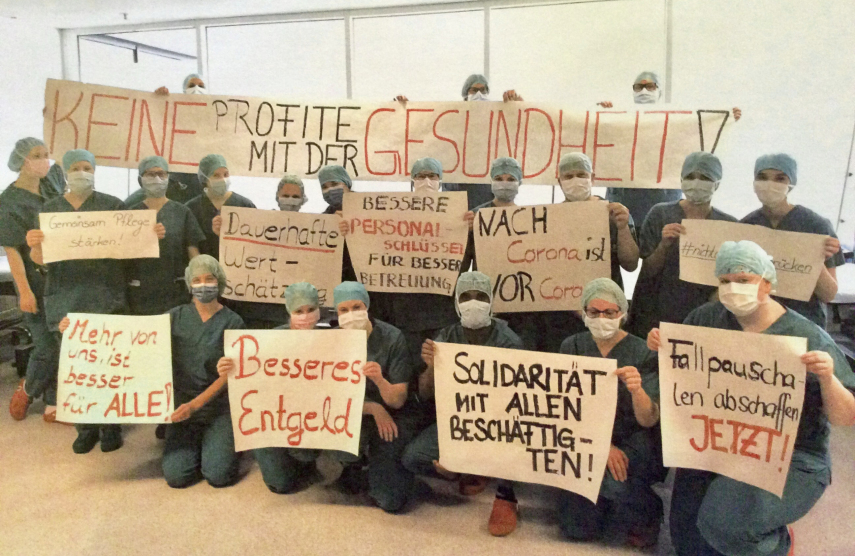 KEINE PROFITE MIT DER GESUNDHEIT!
Gemeinsam Pflege
stärken!
Dauerhafte
Wert-
schätzung
BESSERE
PERSONAL-
SCHLÜSSEL
FÜR BESSERE
BETREUUNG
NACH
Corona ist
VOR Corona
Mehr von
uns, ist
besser
für ALLE!
Besseres
Entgeld
SOLIDARITÄT
MIT ALLEN
BESCHÄFTIG-
TEN!
Fallpauscha-
len abschaffen
JETZT!